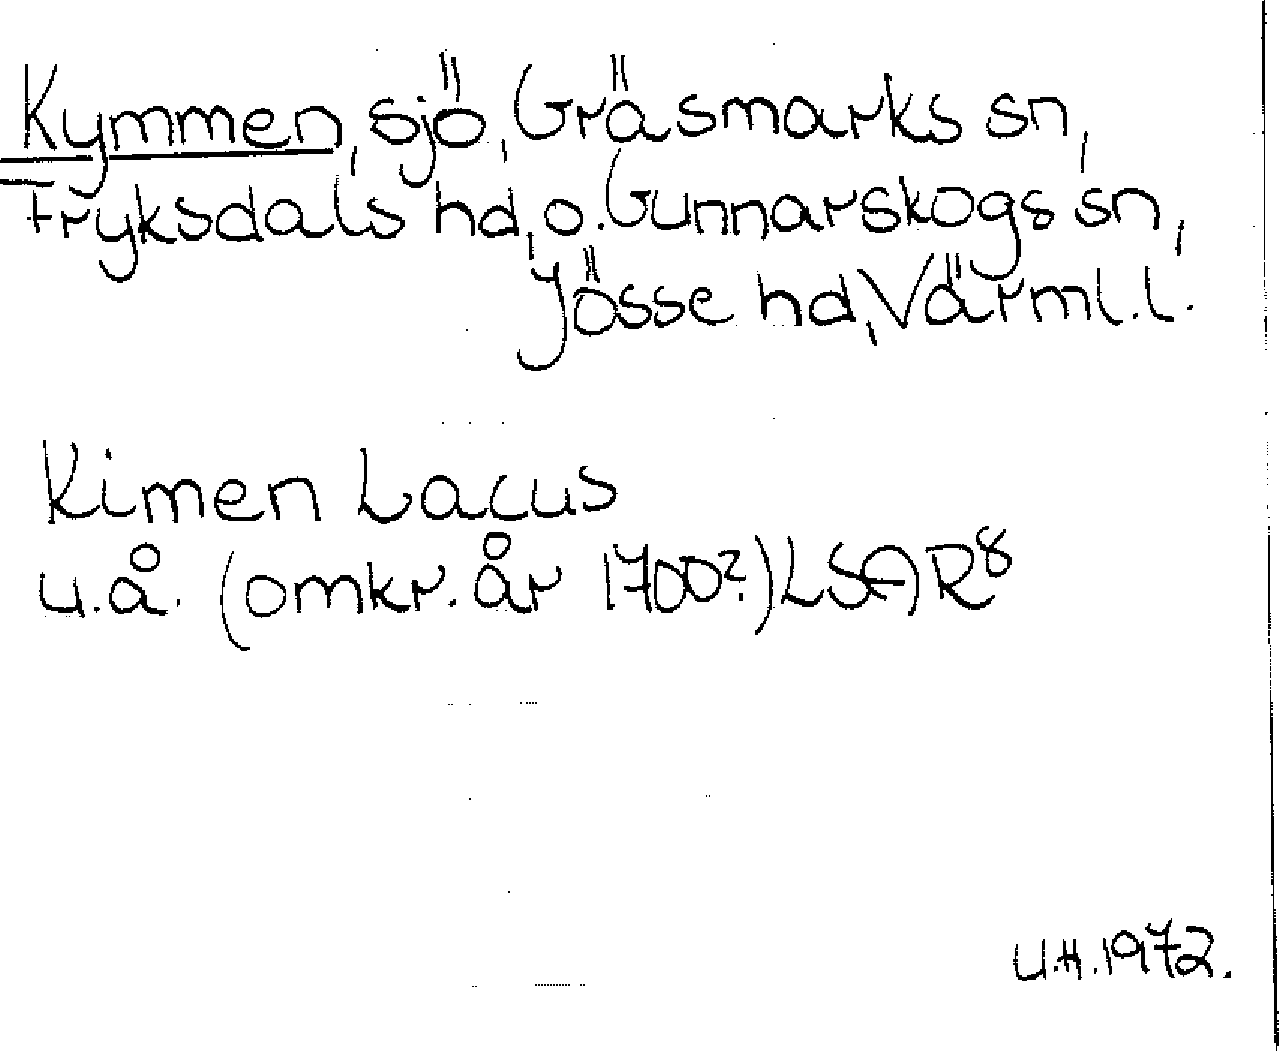 Kymmen, sjö, Gräsmarks sn,
Fryksdals hd, o. Gunnarskogs sn,
Jösse hd, Värml. l.
Kimen Lacus
u.å. (omkr. år 1700?) LSAR⁸
U.H. 1972.